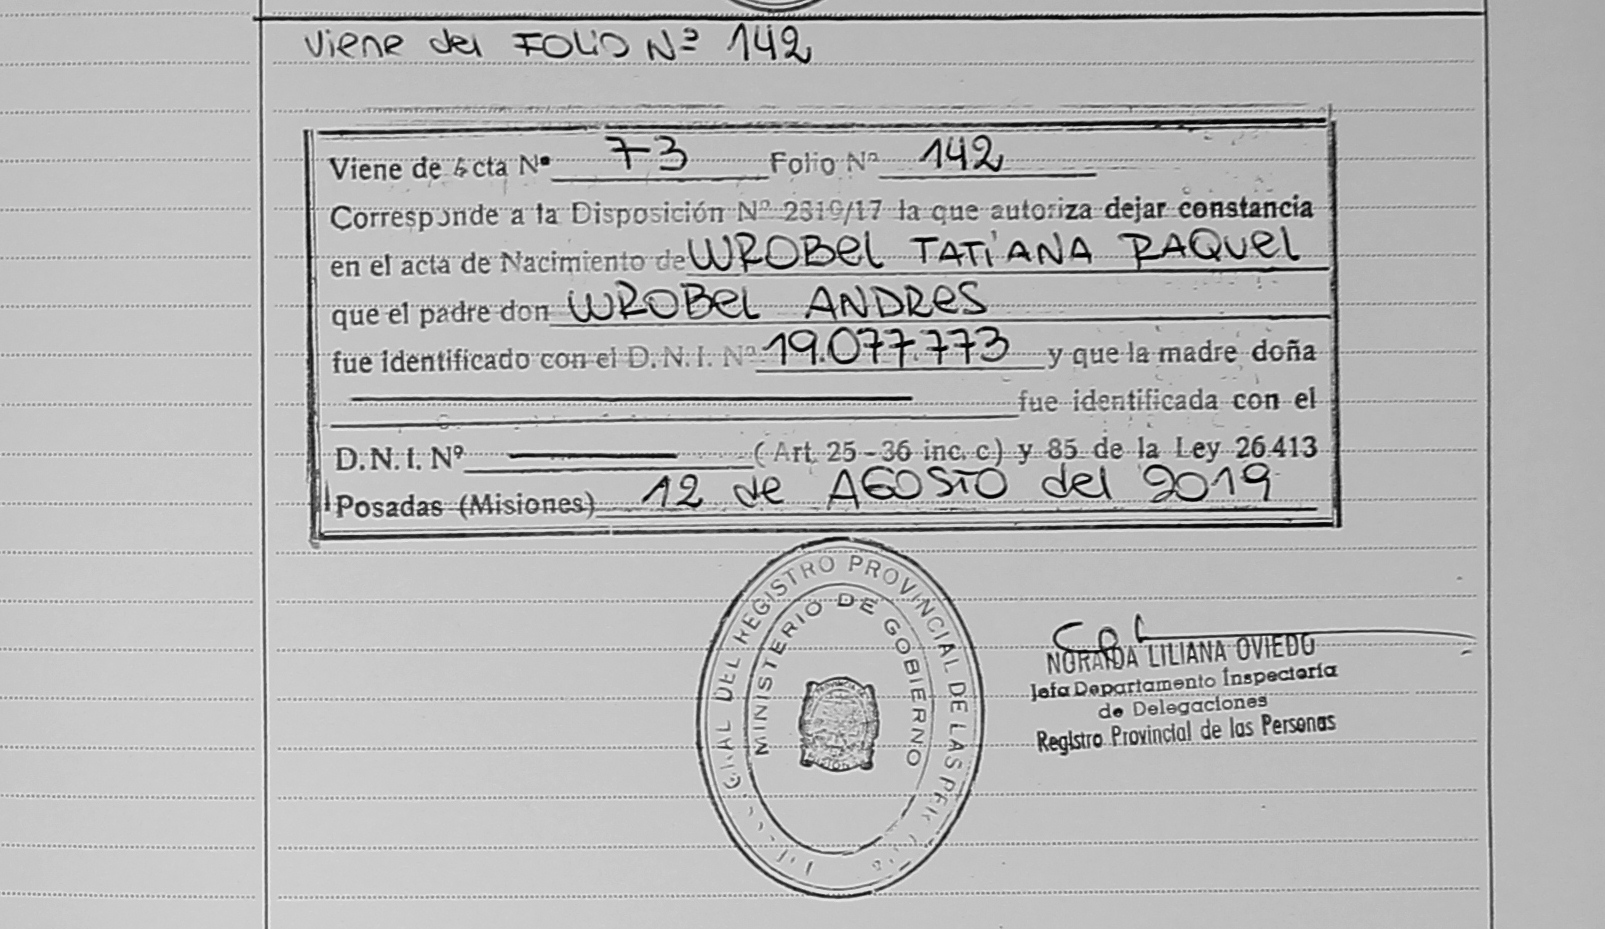 Viene del FOLIO Nº 142
Viene de Acta Nº 73 Folio Nº 142
Corresponde a la Disposición Nº 2319/17 la que autoriza dejar constancia
en el acta de Nacimiento de WROBEL TATIANA RAQUEL
que el padre don WROBEL ANDRES
fue identificado con el D.N.I. Nº 19.077.773 y que la madre doña
fue identificada con el
D.N.I. Nº (Art. 25-36 inc. c) y 85 de la Ley 26.413
Posadas (Misiones) 12 de AGOSTO del 2019
DEL REGISTRO PROVINCIAL DE LAS
MINISTERIO DE GOBIERNO
NORAIDA LILIANA OVIEDO
Jefa Departamento Inspectoría
de Delegaciones
Registro Provincial de las Personas